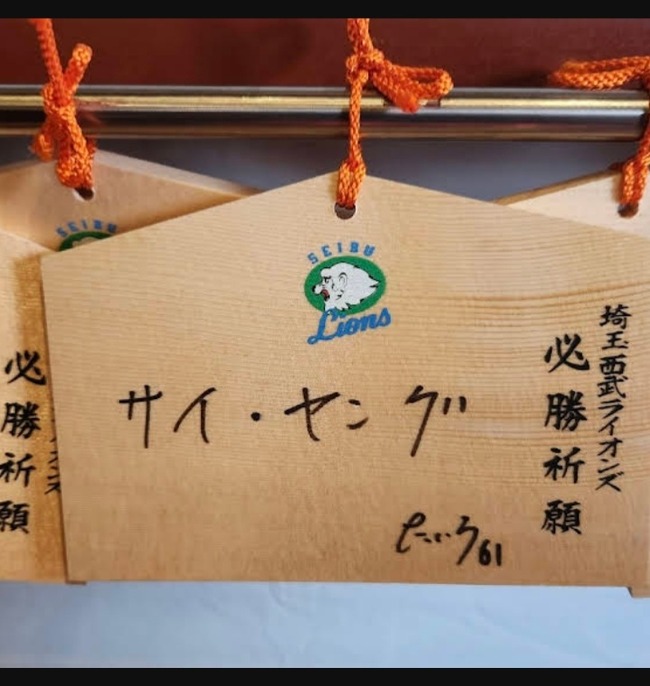 SEIBU
Lions
埼玉西武ライオンズ
必勝祈願
サイ・ヤング
61
SEIBU
必勝祈願
ンズ